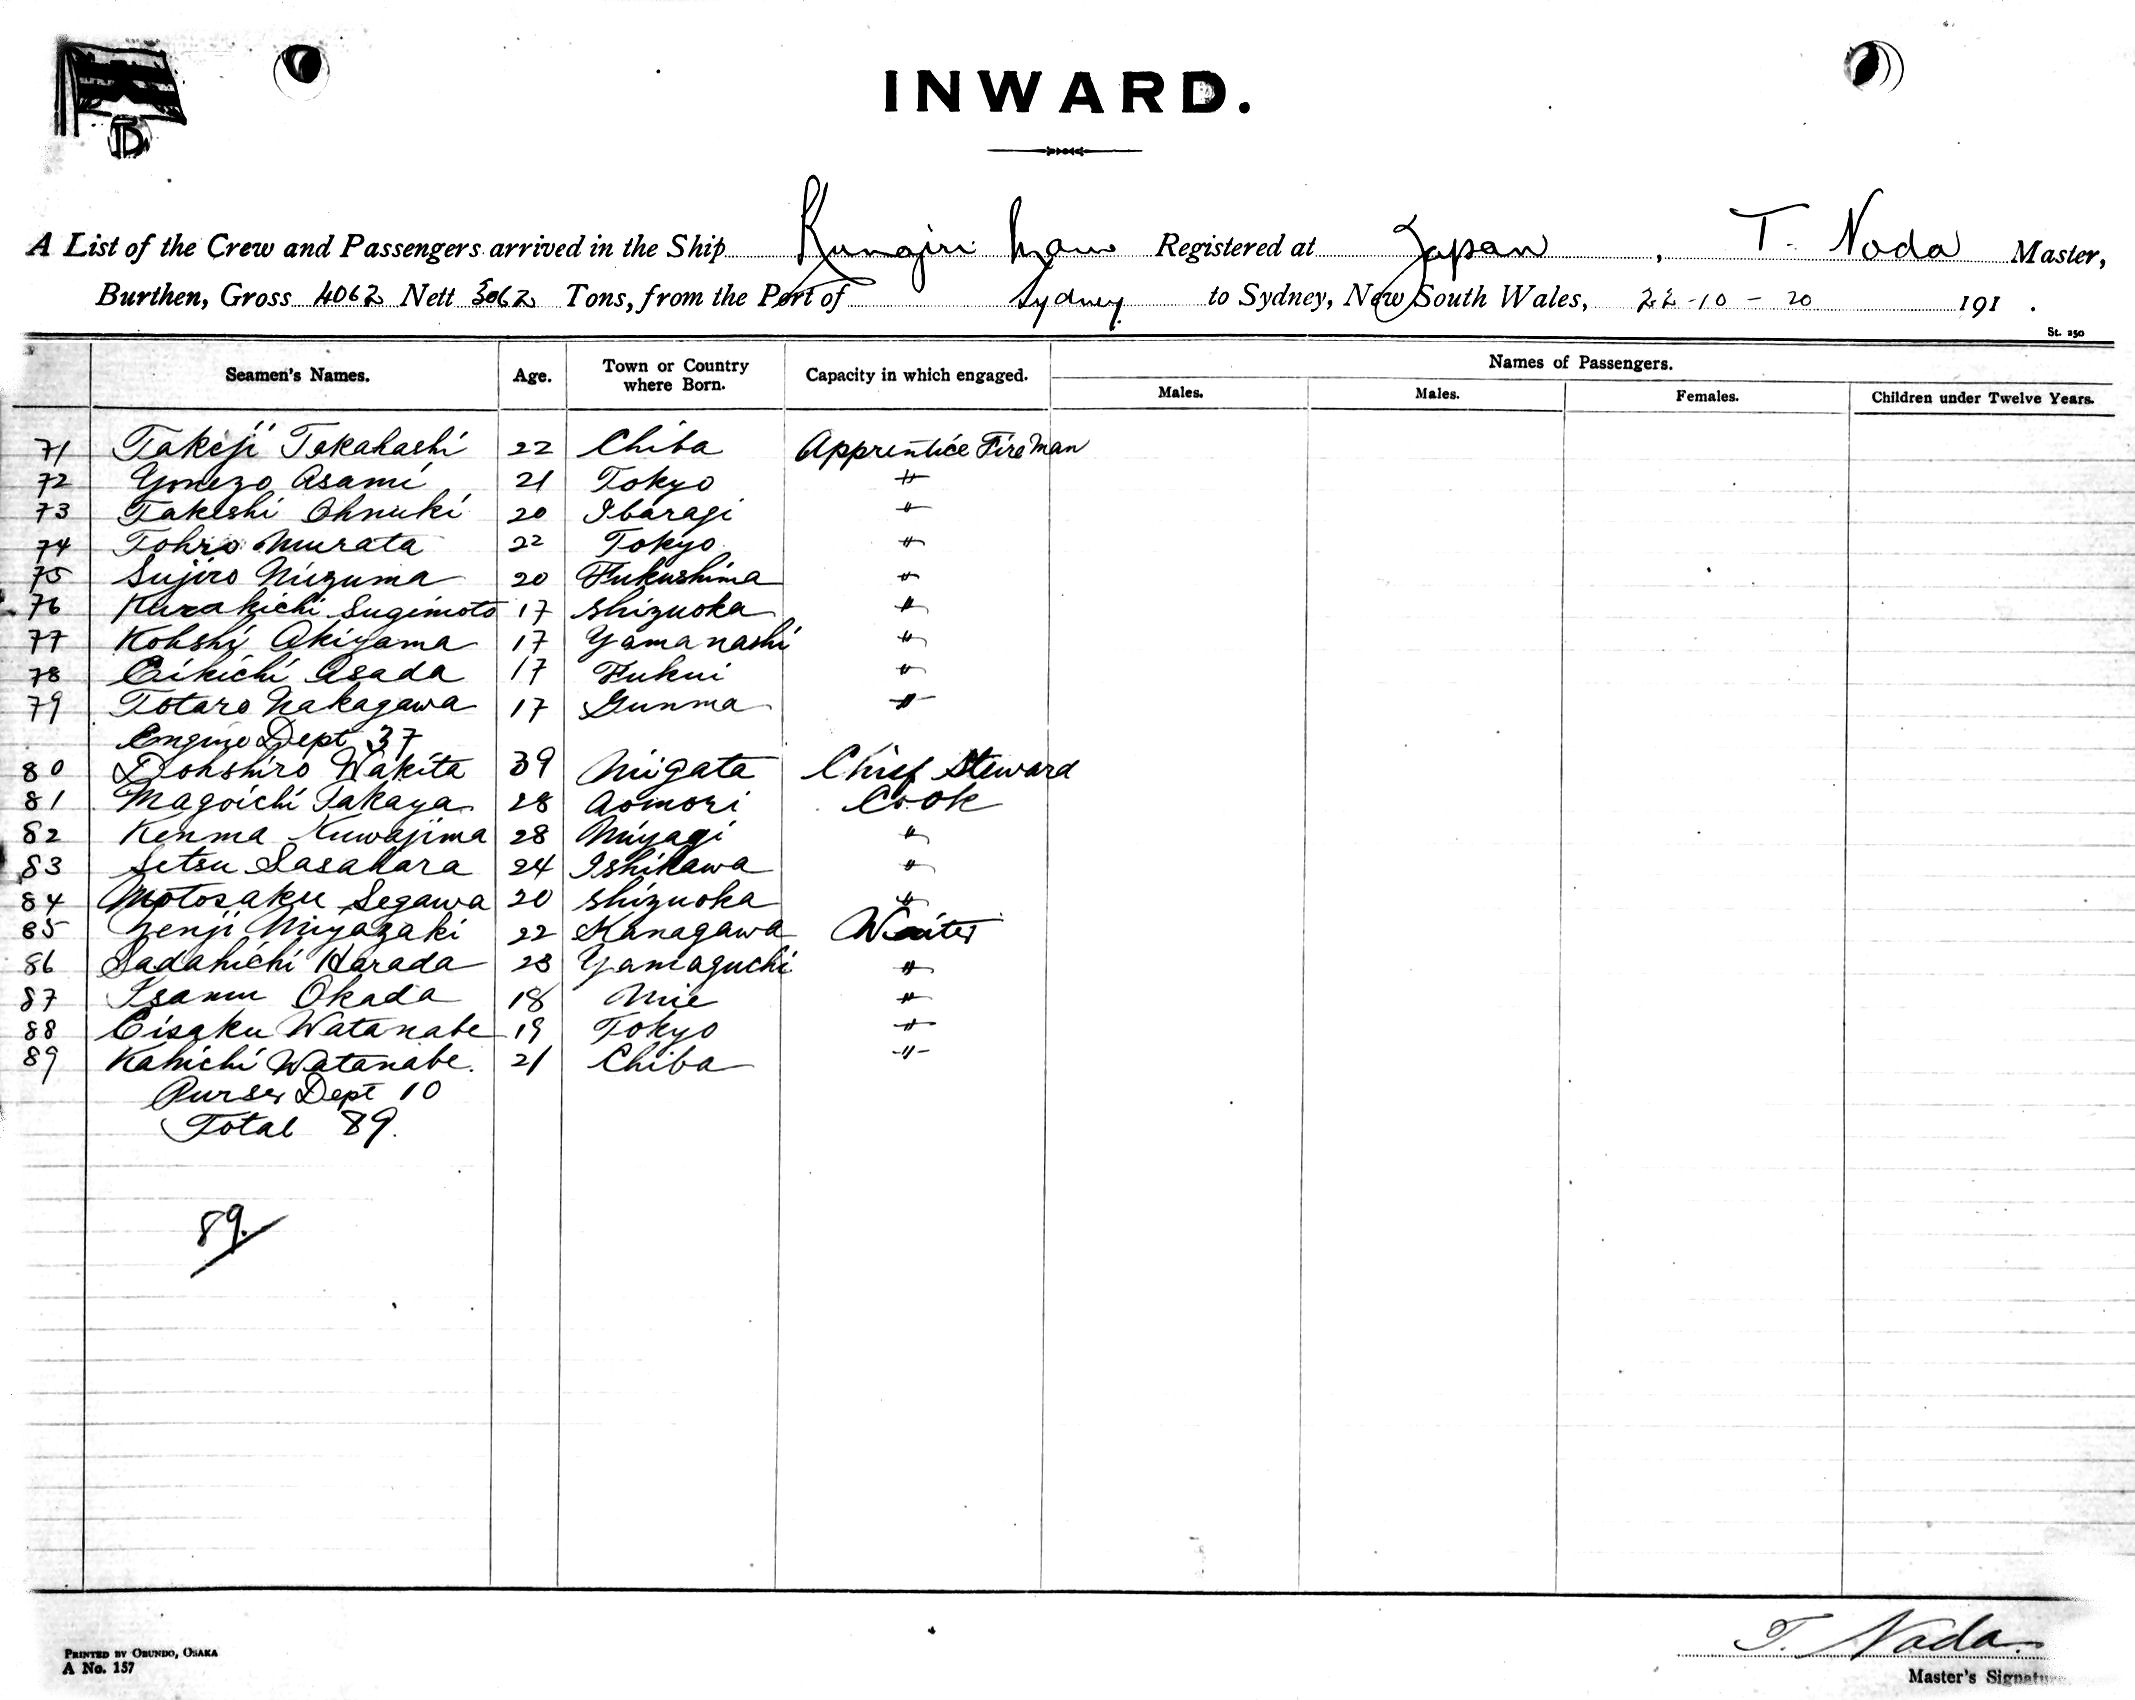 INWARD.
A List of the Crew and Passengers arrived in the Ship Maru Registered at Japan, T. Noda Master,
Burthen, Gross 4062 Nett 3062 Tons, from the Port of Sydney to Sydney, New South Wales, 22-10-20 191 .
St. 250
Seamen's Names. Age. Town or Country where Born. Capacity in which engaged. Names of Passengers.
Males. Males. Females. Children under Twelve Years.
71 Takeji Takahashi 22 Chiba Apprentice Fireman
72 Yonezo Asami 21 Tokyo "
73 Takeshi Ohnuki 20 Ibaragi "
74 Tohro Murata 22 Tokyo "
75 Sujiro Niizuma 20 Fukushima "
76 Kurakichi Sugimoto 17 Shizuoka "
77 Kohshi Akiyama 17 Yamanashi "
78 Eikichi Asada 17 Fukui "
79 Totaro Nakagawa 17 Gunma "
Engine Dept 37
80 Dohshiro Wakita 39 Niigata Chief Steward
81 Magoichi Takaya 28 Aomori Cook
82 Kenma Kuwajima 28 Miyagi "
83 Setsu Sasahara 24 Ishikawa "
84 Motosaku Segawa 20 Shizuoka "
85 Zenji Miyazaki 22 Kanagawa Waiter
86 Sadakichi Harada 23 Yamaguchi "
87 Isamu Okada 18 Mie "
88 Eisaku Watanabe 19 Tokyo "
89 Kakichi Watanabe. 21 Chiba "
Purser Dept 10
Total 89.
89.
T. Noda
Master's Signature
PRINTED BY OBUNDO, OSAKA
A No. 157